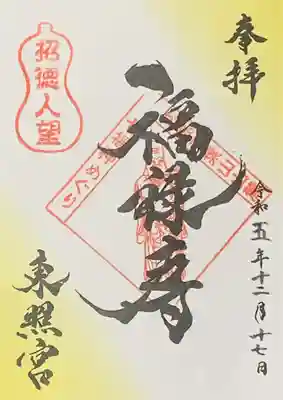 奉拝
令和五年十二月十七日
福禄寿
招徳人望
東照宮